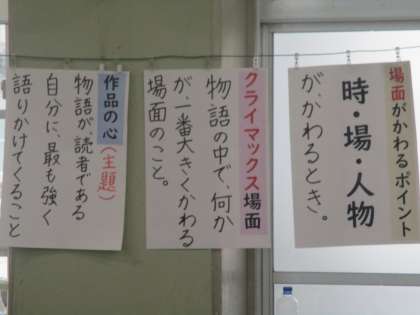 場面がかわるポイント
時・場・人物
が、かわるとき。
クライマックス場面
物語の中で、何か
が、一番大きくかわる
場面のこと。
作品の心(主題)
物語が、読者である
自分に、最も強く
語りかけてくること